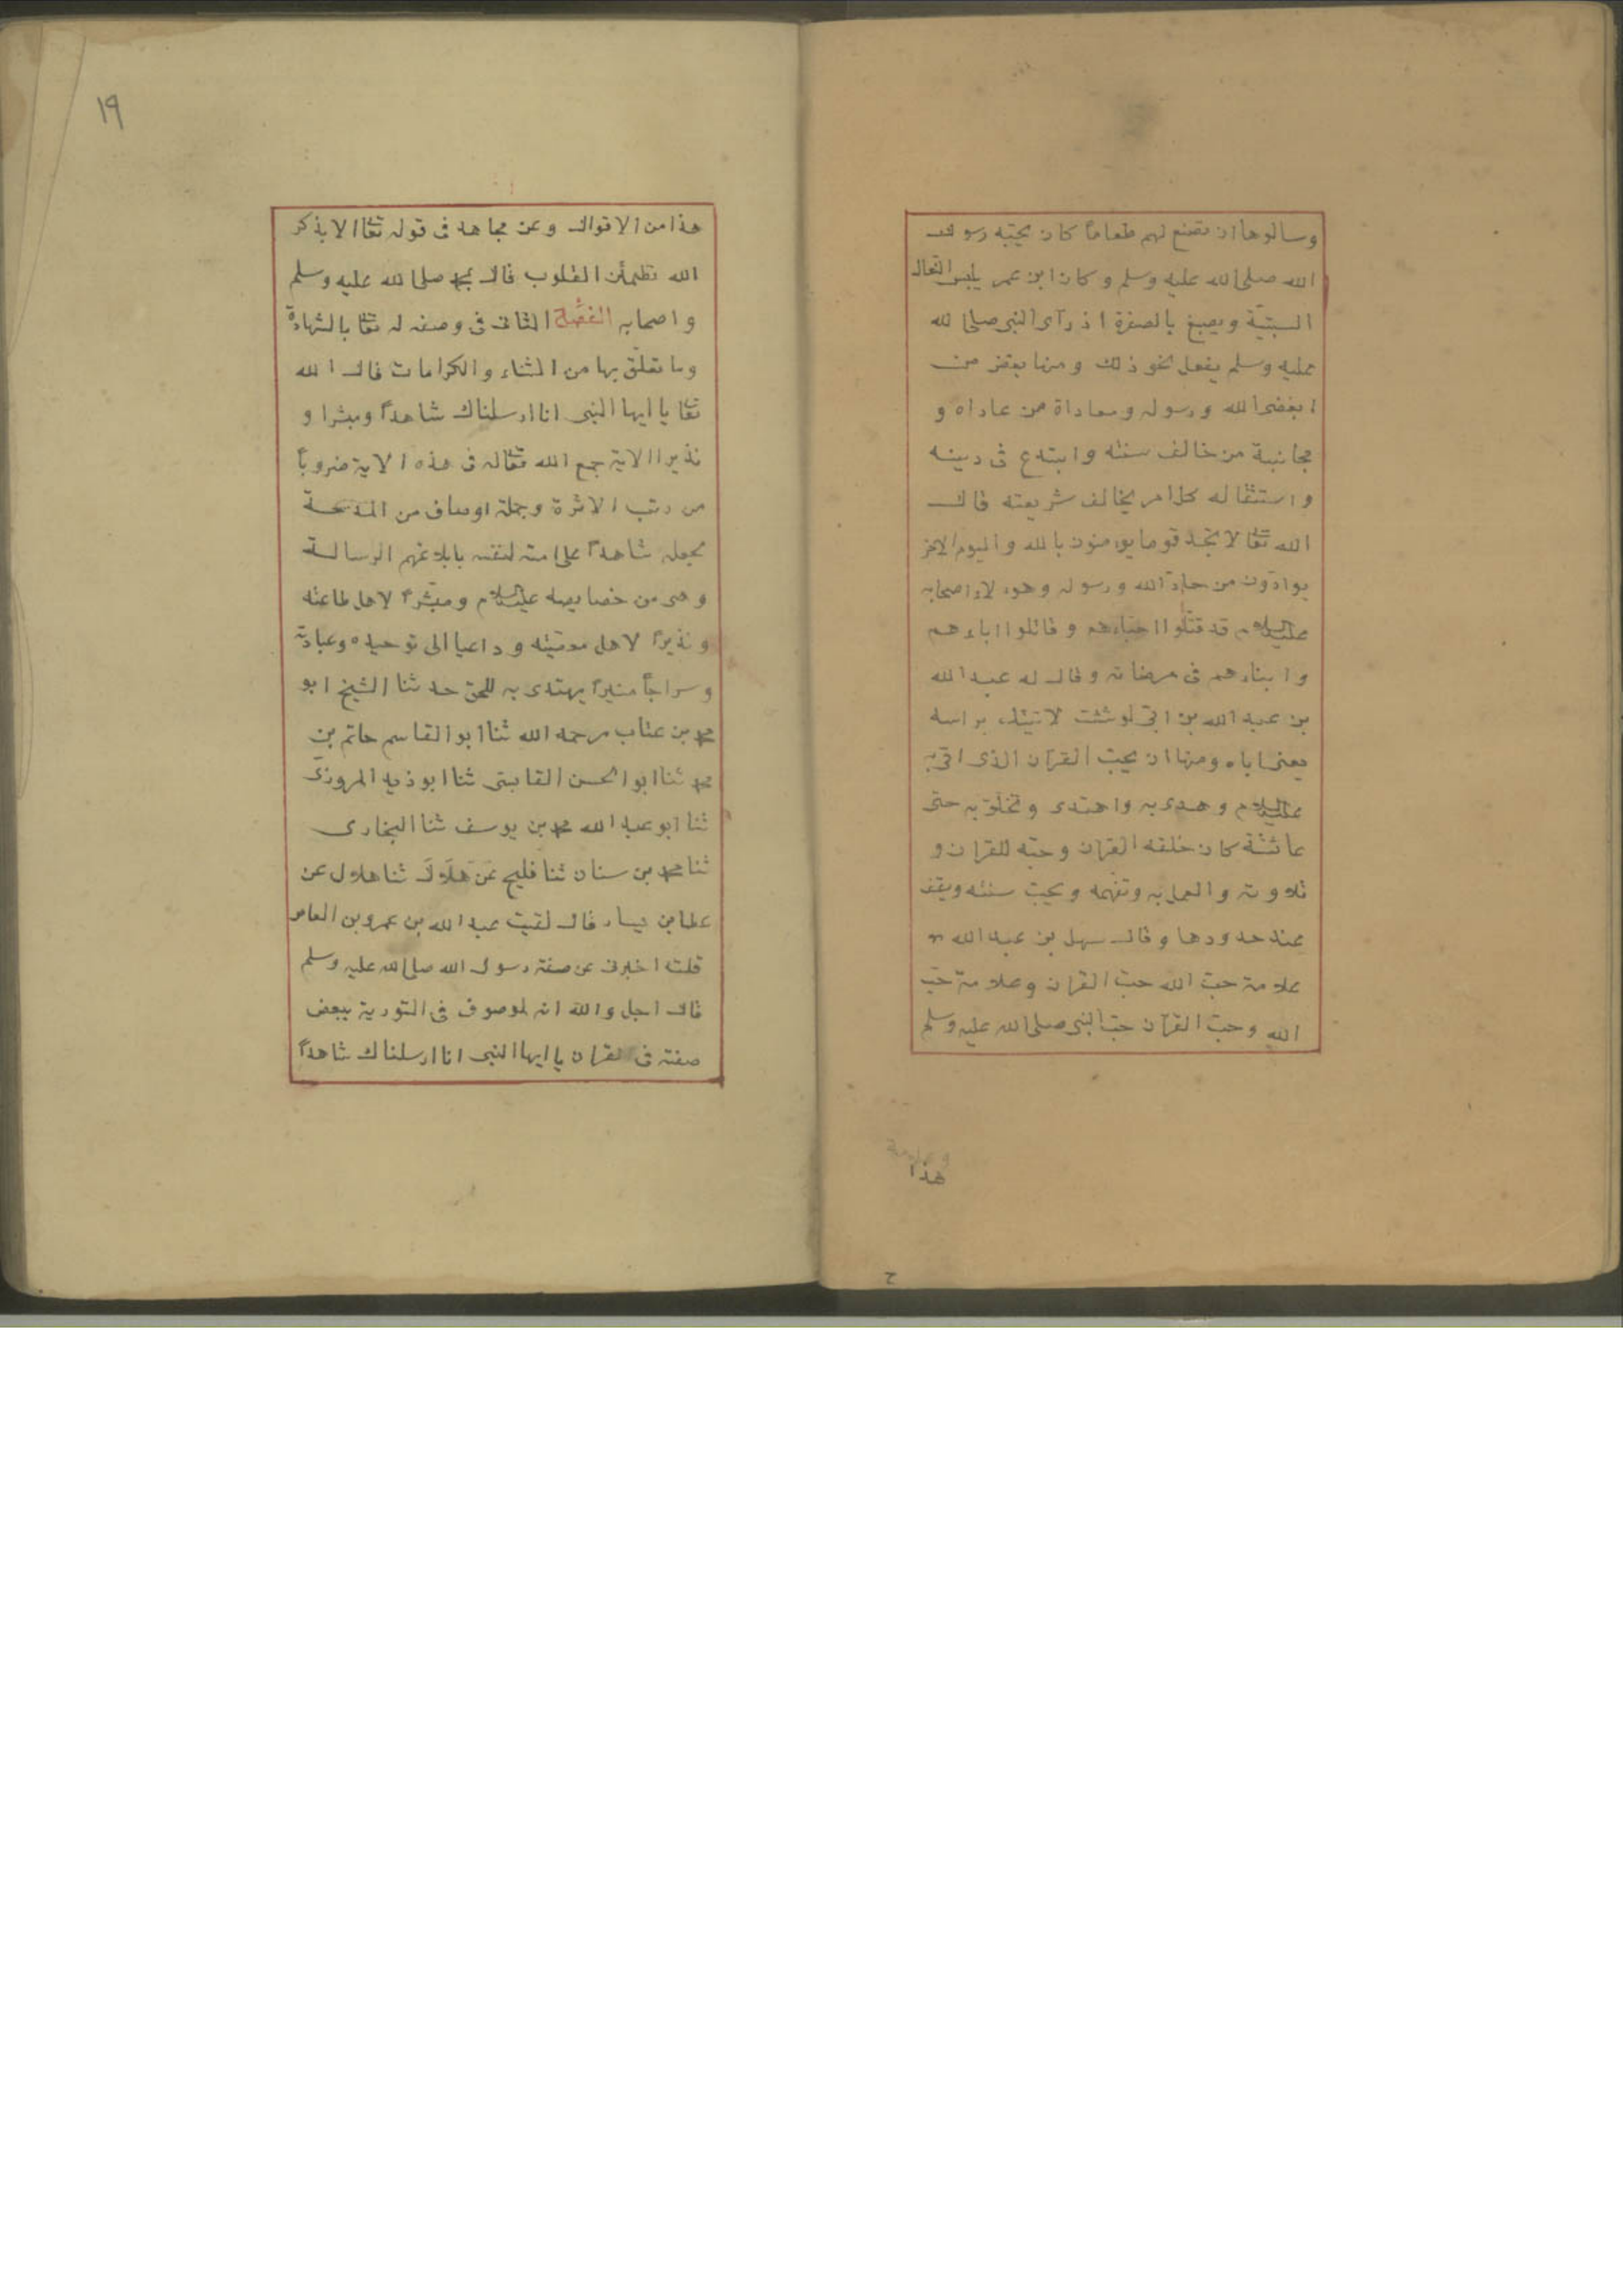 وسالوها ان تصنع لهم طعاماً كان يحبّه رسول
الله صلى الله عليه وسلم وكان ابن عمر يلبس النعال
السبتيّة ويصبغ بالصفرة اذ رآى النبى صلى الله
عليه وسلم يفعل نحو ذلك ومنها بغض من
ابغض الله ورسوله ومعاداة من عاداه و
مجانبة من خالف سنته وابتدع فى دينه
واستثقاله كل امر يخالف شريعته قال
الله تعا لا تجد قوما يؤمنون بالله واليوم الاخر
يوادّون من حادّ الله ورسوله وهولاء اصحابه
عليه السلام قد قتلوا احباءهم وقاتلوا اباءهم
وابناءهم فى مرضاته وقال له عبد الله
بن عبد الله بن ابى لو شئت لاتيتك براسه
يعنى اباه ومنها ان يحبّ القرآن الذى اتى به
عليه السلام وهدى به واهتدى وتخلّق به حتى
عائشة كان خلقه القران وحبّه للقران و
تلاوته والعمل به وتفهمه ويحبّ سنته ويقف
عند حدودها وقال سهل بن عبد الله
علامة حبّ الله حبّ القران وعلامة حبّ
الله وحبّ القرآن حبّ النبى صلى الله عليه وسلم
هذا
١٩
هذا من الاقوال وعن مجاهد فى قوله تعا الا بذكر
الله تطمئن القلوب قال بمحمد صلى الله عليه وسلم
واصحابه الفصل الثانى فى وصفه له تعا بالشهادة
وما تعلّق بها من الثناء والكرامات قال الله
تعا يا ايها النبى انا ارسلناك شاهداً ومبشرا و
نذيرا الاية جمع الله تعا له فى هذه الاية ضروباً
من رتب الاثرة وجملة اوصاف من المدحة
فجعله شاهداً على امته لنفسه بابلاغهم الرسالة
وهى من خصايصه عليه السلام ومبشّراً لاهل طاعته
ونذيراً لاهل معصيته وداعيا الى توحيده وعبادته
وسراجاً منيراً يهتدى به للحق حدثنا الشيخ ابو
محمد بن عتاب رحمه الله ثنا ابو القاسم حاتم بن
محمد ثنا ابو الحسن القابسى ثنا ابو زيد المروزى
ثنا ابو عبد الله محمد بن يوسف ثنا البخارى
ثنا محمد بن سنان ثنا فليح عن هلال ثنا هلال عن
عطا بن يسار قال لقيت عبد الله بن عمرو بن العاص
قلت اخبرنى عن صفة رسول الله صلى الله عليه وسلم
قال اجل والله انه لموصوف فى التورية ببعض
صفته فى القران يا ايها النبى انا ارسلناك شاهداً